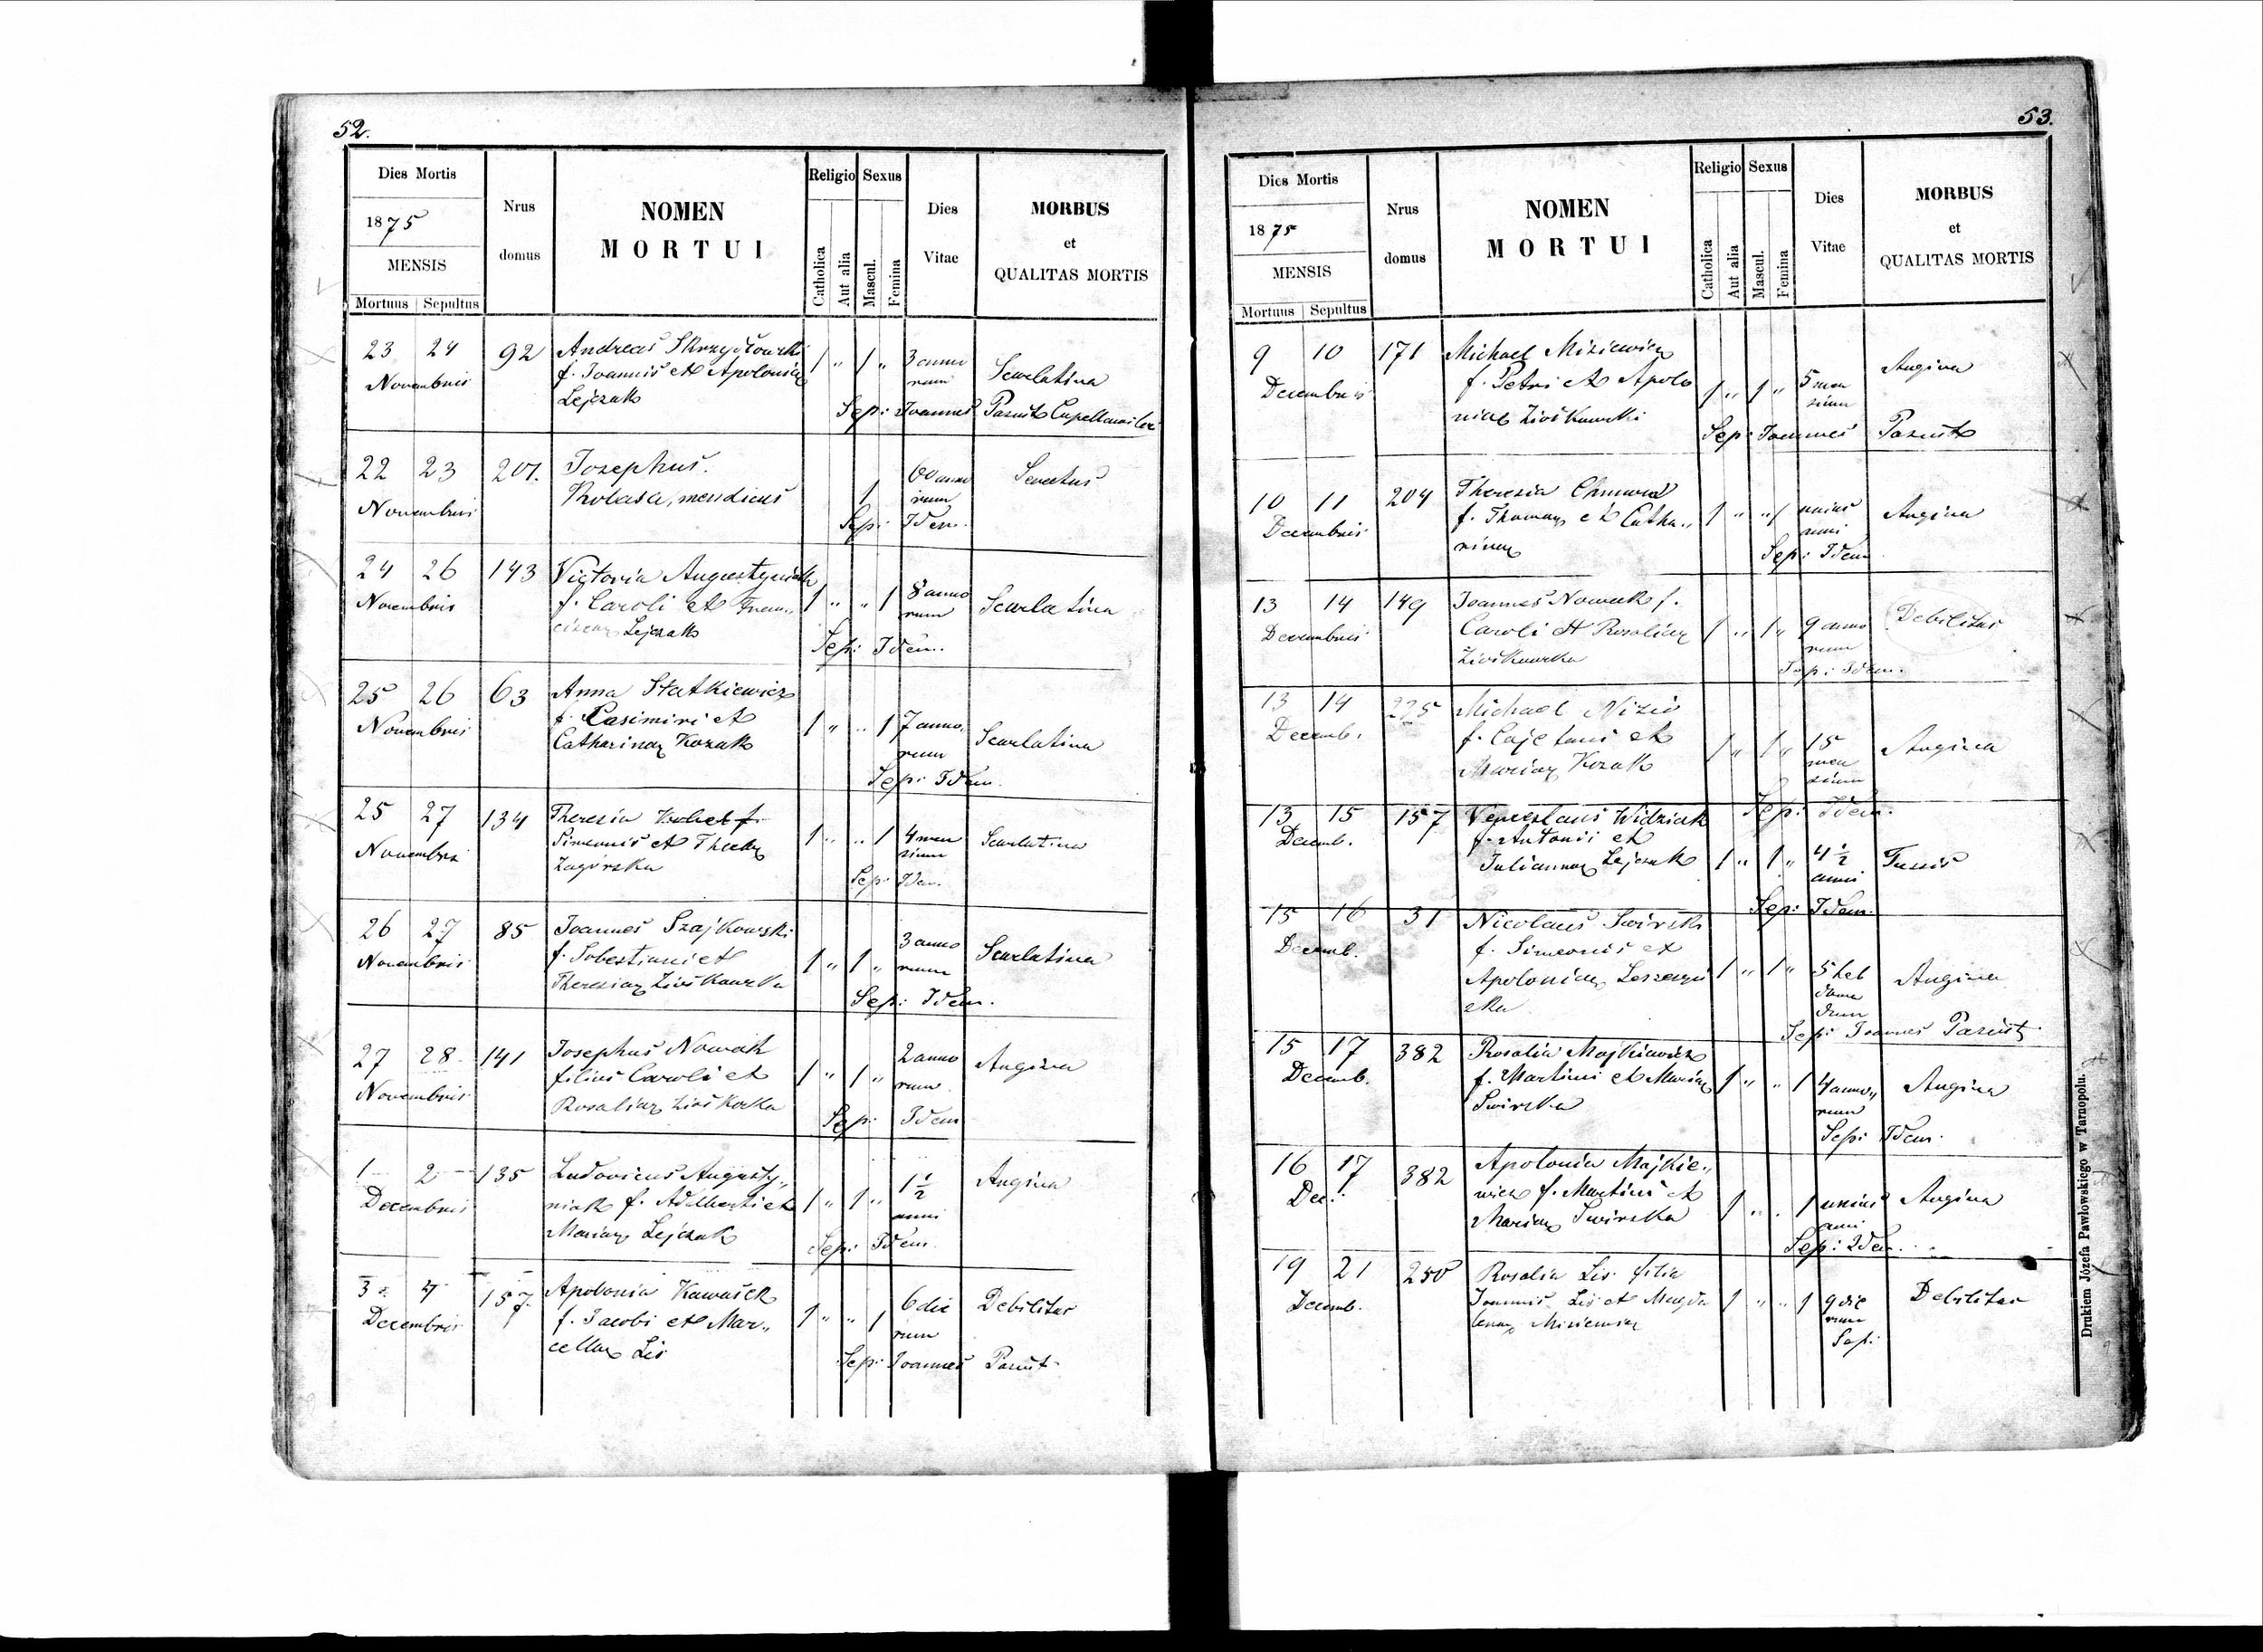 52.
Dies Mortis
1875
MENSIS
Mortuus Sepultus
Nrus
domus
NOMEN
MORTUI
Religio
Catholica
Aut alia
Sexus
Mascul.
Femina
Dies
Vitae
MORBUS
et
QUALITAS MORTIS
23 24 92 Andreas
Novembris f. Joannis et Apolonia 1 " 1 " 3 anno
rum Scarlatina
Lejczak
Sep: Joannes Parust
22 23 201. Josephus.
Kobasa, mendicus 1 60 anno
rum Senectus
Novembris Sep: Idem.
24 26 143 Victoria Augustyniak
Novembris f. Caroli et Fran„ 1 " " 1 8 anno
rum Scarlatina
ciscae Lejczak
Sep: Idem.
25 26 63 Anna Statkiewicz
Novembris f. Casimiri et 1 " " 1 7 anno
rum Scarlatina
Catharinae Kozak
Sep: Idem.
25 27 134 Theresia f.
Novembris Simeonis et Theclae 1 " " 1 4 men
sium Scarlatina
Zagórska
Sep: Idem.
26 27 85 Joannes Szajkowski
Novembris f. Sebestiani et 1 " 1 " 3 anno
rum Scarlatina
Theresiae
Sep: Idem.
27 28 141 Josephus Nowak
Novembris filius Caroli et 1 " 1 " 2 anno
rum Angina
Rosaliae
Sep: Idem
1 2 135 Ludovicus Augusty„
Decembris niak f. Adalberti et 1 " 1 " 1 1/2
anni Angina
Mariae Lejczak
Sep: Idem.
3 4 157. Apolonia
Decembris f. Jacobi et Mar„ 1 " " 1 6 die
rum Debilitas
cellae Lis
Sep: Joannes Parust
53.
Dies Mortis
1875
MENSIS
Mortuus Sepultus
Nrus
domus
NOMEN
MORTUI
Religio
Catholica
Aut alia
Sexus
Mascul.
Femina
Dies
Vitae
MORBUS
et
QUALITAS MORTIS
9 10 171 Michael Misiewicz
Decembris f. Petri et Apolo 1 " 1 " 5 men
sium Angina
niae
Sep: Joannes Parust
10 11 204 Theresia Chmura
Decembris f. Thomae et Catha„ 1 " " 1 unius
anni Angina
rinae
Sep: Idem
13 14 149 Joannes Nowak f.
Decembris Caroli et Rosaliae 1 " 1 " 9 anno
rum Debilitas
Sep: Idem.
13 14 225 Michael Nizio
Decemb. f. Cajetani et 1 " 1 " 15
men
sium Angina
Mariae Kozak
Sep: Idem.
13 15 157 Venceslaus Widziak
Decemb. f. Antonii et
Juliannae Lejczak 1 " 1 " 4 1/2
anni Tussis
Sep: Idem.
15 16 31 Nicolaus Swirski
Decemb. f. Simeonis et
Apoloniae Leszczyń 1 " 1 " 5 heb
doma
dum Angina
ska
Sep: Joannes Parust
15 17 382 Rosalia Majkiewicz
Decemb. f. Martini et Mariae 1 " " 1 4 anno„
rum Angina
Swirska
Sep: Idem.
16 17 382 Apolonia Majkie„
Dec. wicz f. Martini et
Mariae Swirska 1 " " 1 unius
anni Angina
Sep: Idem.
19 21 250 Rosalia Lis filia
Decemb. Joannis Lis et Magda 1 " " 1 9 die
rum Debilitas
lenae Misiewicz
Sep:
Drukiem Józefa Pawłowskiego w Tarnopolu.